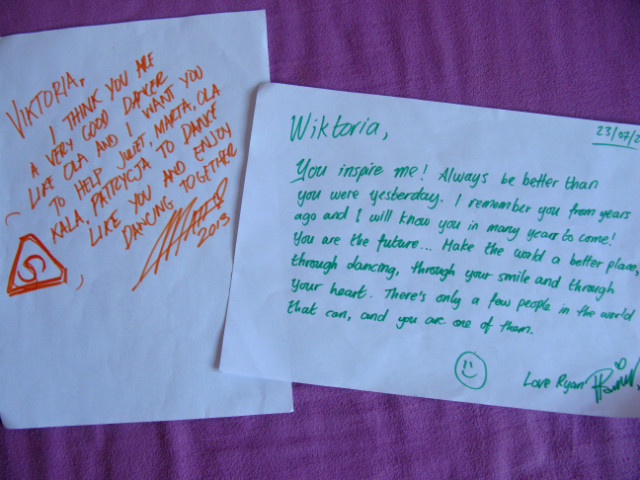 VIKTORIA,
I THINK YOU ARE
A VERY GOOD DANCER
LIKE OLA AND I WANT YOU
TO HELP JULIET, MARTA, OLA
KALA, PATRYCJA TO DANCE
LIKE YOU AND ENJOY
DANCING TOGETHER
2013
S
23/07/2
Wiktoria,
You inspire me! Always be better than
you were yesterday. I remember you from years
ago and I will know you in many years to come!
You are the future... Make the world a better place,
through dancing, through your smile and through
your heart. There's only a few people in the world
that can, and you are one of them.
Love Ryan